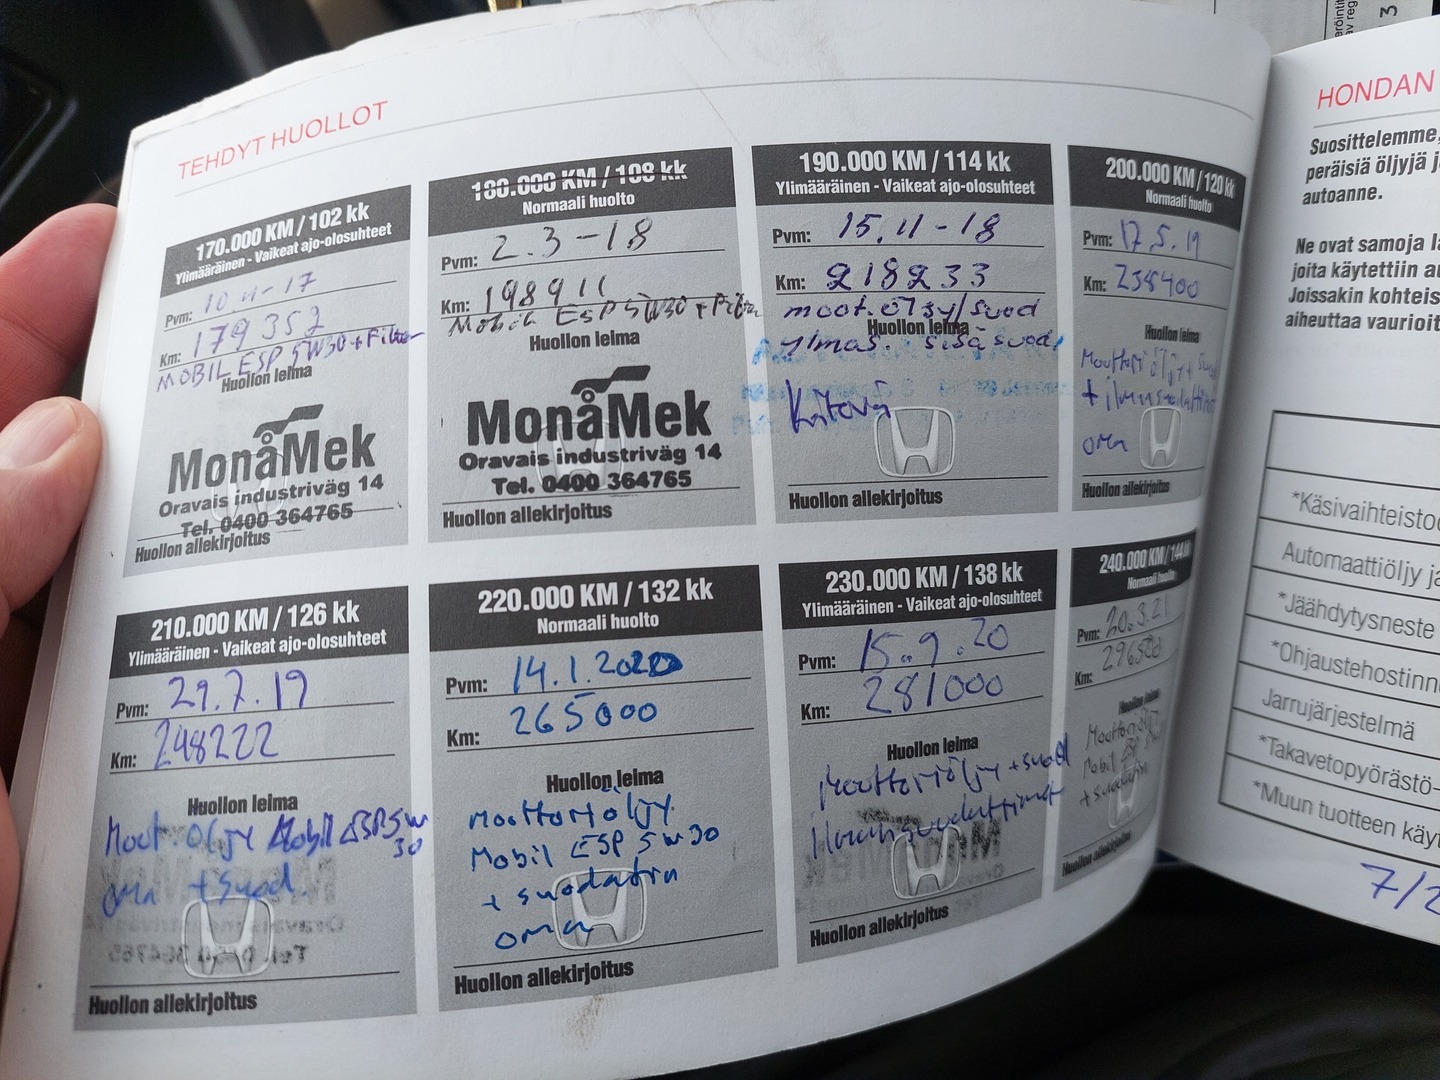 TEHDYT HUOLLOT
170.000 KM / 102 kk
Ylimääräinen - Vaikeat ajo-olosuhteet
Pvm: 10.11-17
Km: 179 352
MOBIL ESP 5W30 + Filter
Huollon leima
MonåMek
Oravais industriväg 14
Tel. 0400 364765
Huollon allekirjoitus
180.000 KM / 108 kk
Normaali huolto
Pvm: 2.3-18
Km: 198911
Mobil ESP 5W30 + Filter
Huollon leima
MonåMek
Oravais industriväg 14
Tel. 0400 364765
Huollon allekirjoitus
190.000 KM / 114 kk
Ylimääräinen - Vaikeat ajo-olosuhteet
Pvm: 15.11-18
Km: 218233
moot.öljy/suod
Huollon leima
ylmas. sisäsuod.
Huollon allekirjoitus
200.000 KM / 120 kk
Normaali huolto
Pvm: 17.5.19
Km: 238400
Huollon leima
Moottoriöljy + suod
+ ilmansuodattimet
oma
Huollon allekirjoitus
210.000 KM / 126 kk
Ylimääräinen - Vaikeat ajo-olosuhteet
Pvm: 29.7.19
Km: 248222
Huollon leima
Moot. öljy Mobil ESP 5W
30
oma + suod.
Huollon allekirjoitus
220.000 KM / 132 kk
Normaali huolto
Pvm: 14.1.2020
Km: 265000
Huollon leima
Moottoriöljy
Mobil ESP 5W30
+ suodatin
oma
Huollon allekirjoitus
230.000 KM / 138 kk
Ylimääräinen - Vaikeat ajo-olosuhteet
Pvm: 15.9.20
Km: 281000
Huollon leima
Moottoriöljy + suod
Ilmansuodattimet
Huollon allekirjoitus
240.000 KM / 144 kk
Normaali huolto
Pvm: 20.3.21
Km: 296500
Huollon leima
Moottoriöljy
Mobil ESP 5W
+ suodatin
Huollon allekirjoitus
HONDAN
Suosittelemme,
peräisiä öljyjä j
autoanne.
Ne ovat samoja la
joita käytettiin au
Joissakin kohteis
aiheuttaa vaurioit
*Käsivaihteisto
Automaattiöljy ja
*Jäähdytysneste
*Ohjaustehostinn
Jarrujärjestelmä
*Takavetopyörästö-
*Muun tuotteen käyt
7/2